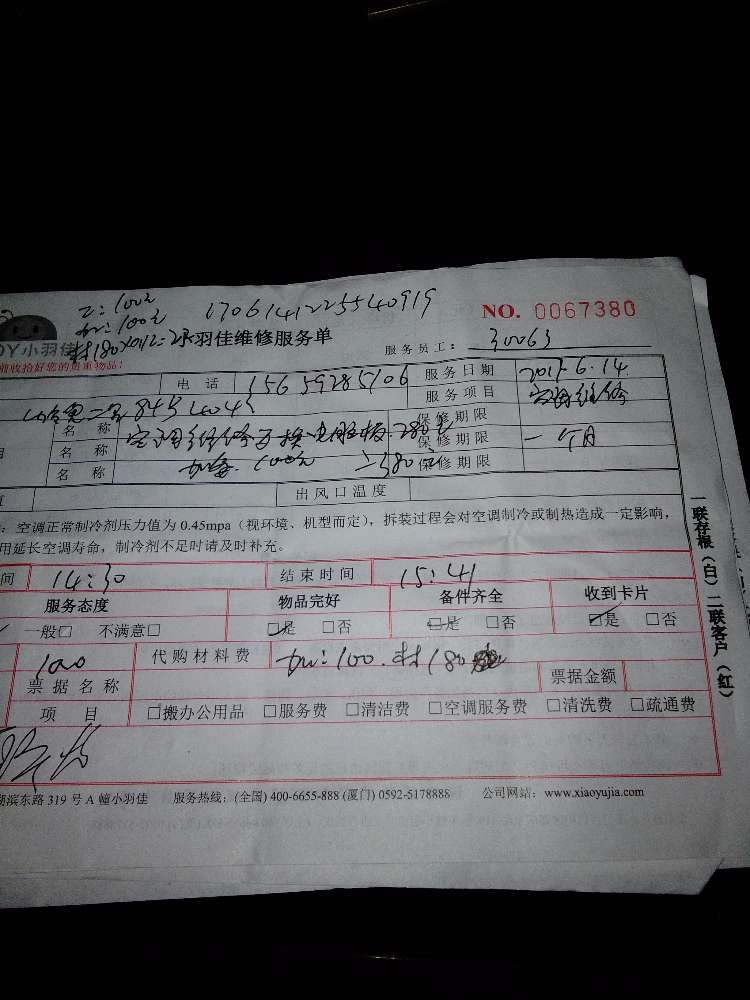 工:100元 170614122554 0919
加:100元 NO. 0067380
材180 小羽佳维修服务单 服务员工: 30063
DY小羽佳
收拾好您的贵重物品:
电 话 15659285706 服务日期 2017.6.14
二号845 404 服务项目 空调维修
名 称 空调维修 280元 保修期限
名 称 100元 380元 保修期限 一个月
名 称 保修期限
出风口温度
:空调正常制冷剂压力值为 0.45mpa(视环境、机型而定),拆装过程会对空调制冷或制热造成一定影响,
用延长空调寿命,制冷剂不足时请及时补充。
间 14:30 结束时间 15:41
服务态度 物品完好 备件齐全 收到卡片
一般□ 不满意□ □是 □否 □是 □否 □是 □否
100 代购材料费 加:100.材180
票据名称 票据金额
项 目 □搬办公用品 □服务费 □清洁费 □空调服务费 □清洗费 □疏通费
湖滨东路 319 号 A 幢小羽佳 服务热线:(全国) 400-6655-888 (厦门) 0592-5178888 公司网站:www.xiaoyujia.com
一联存根(白)二联客户(红)